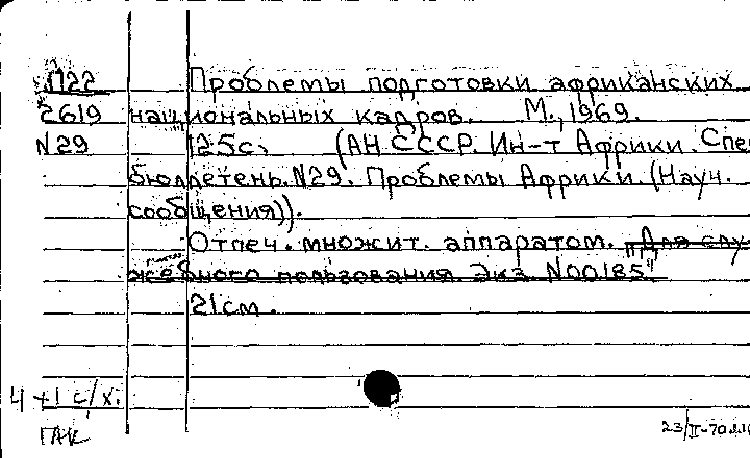 П22 Проблемы подготовки африканских
2619 национальных кадров. М., 1969.
N29 125с. (АН СССР. Ин-т Африки. Спе
бюллетень. N29. Проблемы Африки. (Науч.
сообщения)).
Отпеч. множит. аппаратом. "Для слу
жебного пользования. Экз. N00185"
21см.
4+1 с/х.
ГАК
23/II-70